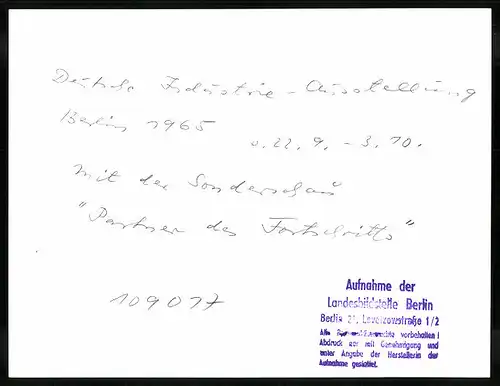 Deutsche Industrie-Ausstellung
Berlin 1965
v. 22. 9. - 3. 10.
mit der Sonderschau
"Partner des Fortschritts"
109017
Aufnahme der
Landesbildstelle Berlin
Berlin 21, Levetzowstraße 1/2
Alle vorbehalten!
Abdruck nur mit Genehmigung und
unter Angabe der Herstellerin der
Aufnahme gestattet.